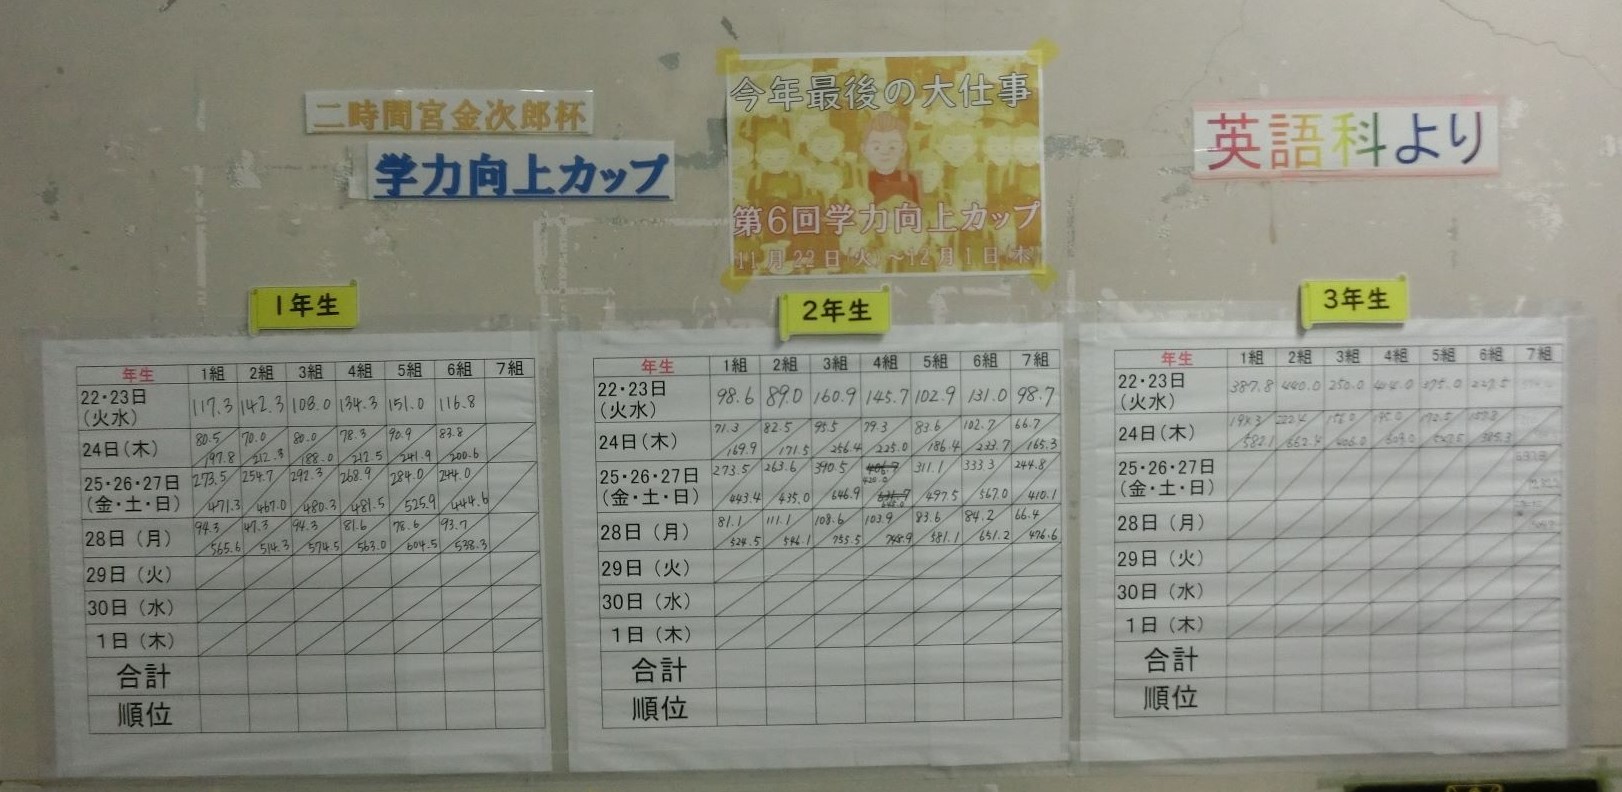 二時間宮金次郎杯
学力向上カップ
今年最後の大仕事
第6回学力向上カップ
11月22日(火)~12月1日(木)
英語科より
1年生
年生 1組 2組 3組 4組 5組 6組 7組
22・23日(火水) 117.3 142.3 108.0 134.3 151.0 116.8
24日(木) 80.5 70.0 80.0 78.3 90.9 83.8
197.8 212.3 188.0 212.5 241.9 200.6
25・26・27日(金・土・日) 273.5 254.7 292.3 268.9 284.0 244.0
471.3 467.0 480.3 481.5 525.9 444.6
28日(月) 94.3 47.3 94.3 81.6 78.6 93.7
565.6 514.3 574.5 563.0 604.5 538.3
29日(火)
30日(水)
1日(木)
合計
順位
2年生
年生 1組 2組 3組 4組 5組 6組 7組
22・23日(火水) 98.6 89.0 160.9 145.7 102.9 131.0 98.7
24日(木) 71.3 82.5 95.5 79.3 83.6 102.7 66.7
169.9 171.5 256.4 225.0 186.4 233.7 165.3
25・26・27日(金・土・日) 273.5 263.6 390.5 311.1 333.3 244.8
443.4 435.0 646.9 497.5 567.0 410.1
28日(月) 81.1 111.1 108.6 103.9 83.6 84.2 66.4
524.5 546.1 755.5 748.9 581.1 651.2 476.6
29日(火)
30日(水)
1日(木)
合計
順位
3年生
年生 1組 2組 3組 4組 5組 6組 7組
22・23日(火水) 387.8 440.0 250.0
24日(木) 222.4 156.0
582.1 662.4 406.0
25・26・27日(金・土・日)
28日(月)
29日(火)
30日(水)
1日(木)
合計
順位